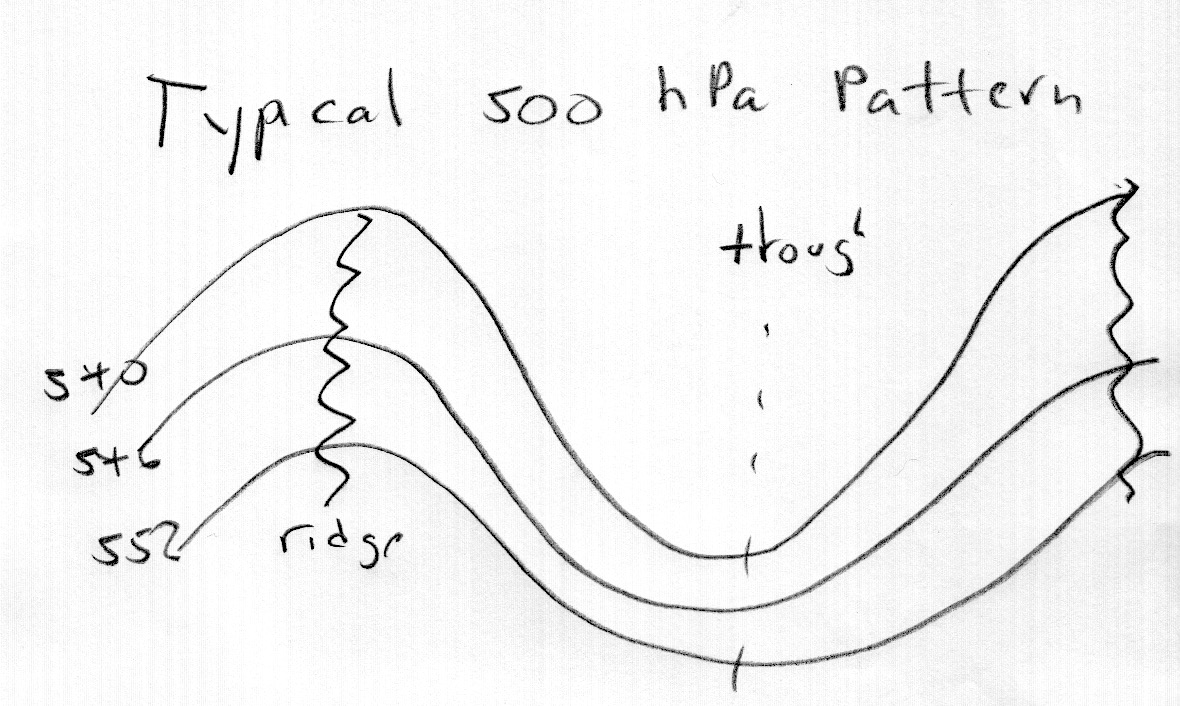 Typical 500 hPa Pattern
trough
540
546
552
ridge